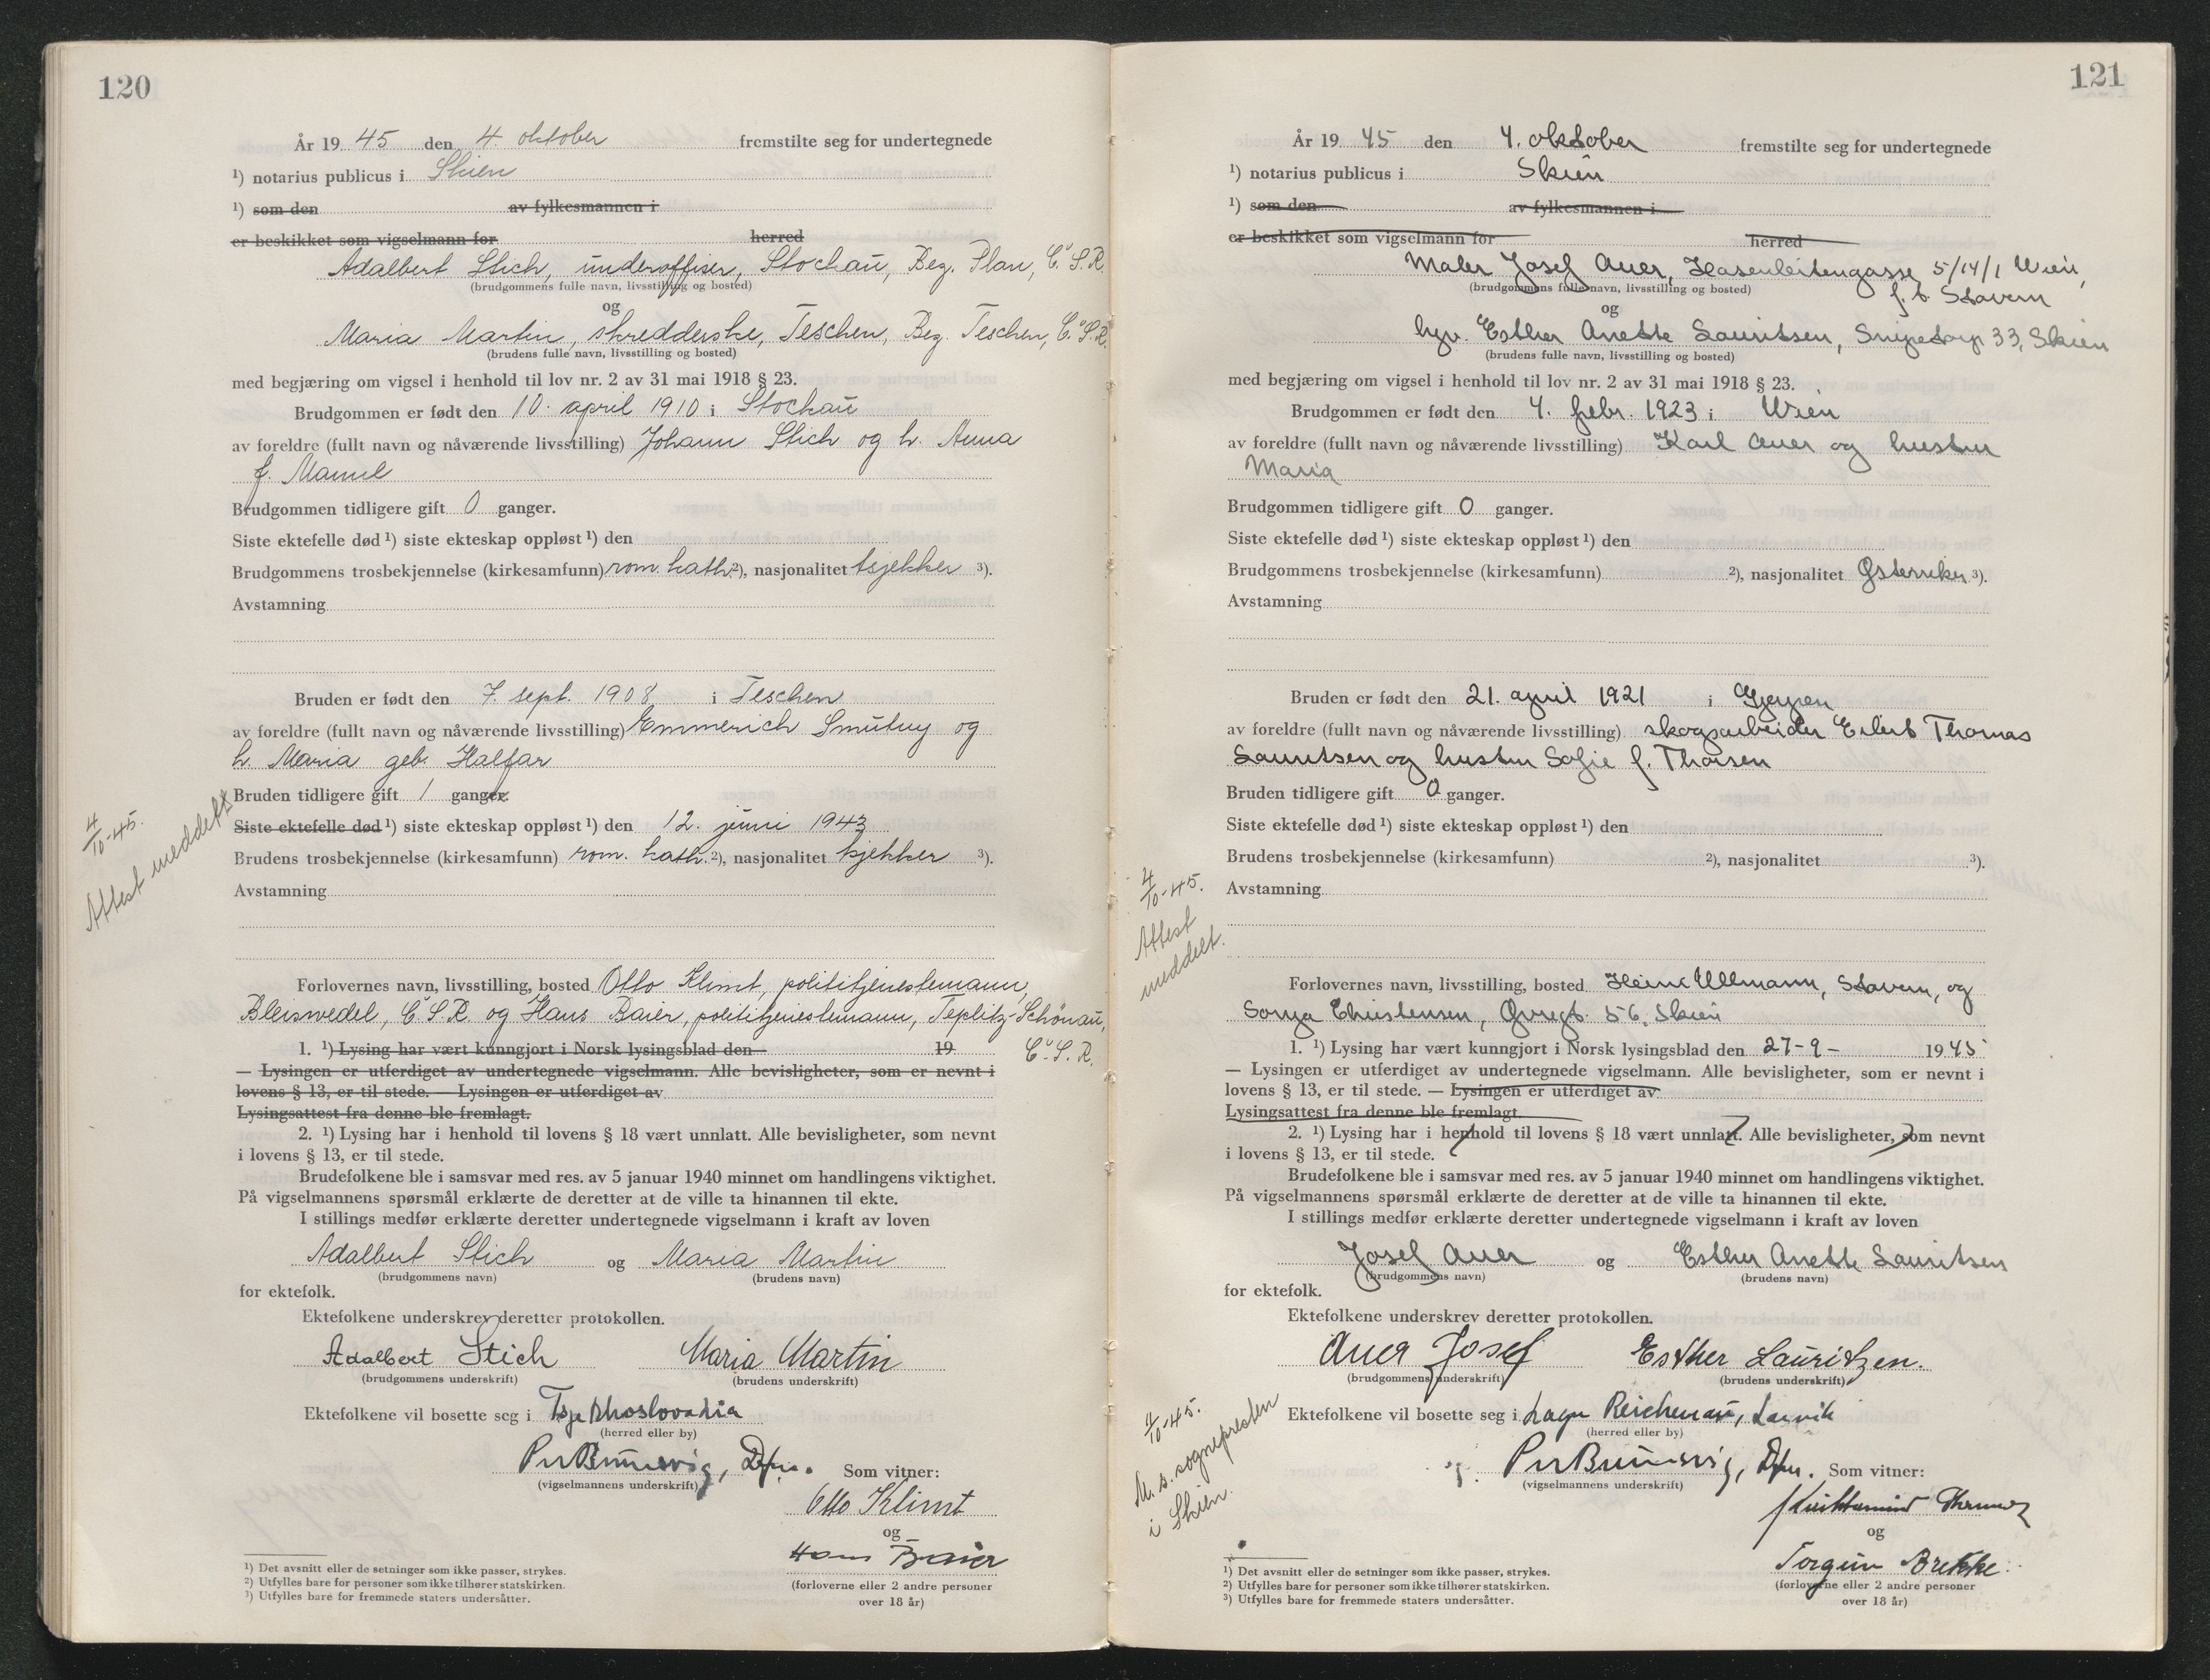 120
År 19 45 den 4. oktober fremstilte seg for undertegnede
¹) notarius publicus i Skien
¹) som den av fylkesmannen i
er beskikket som vigselmann for herred
Adalbert Stich, underoffiser, Stockau, Bez. Plan, Č.S.R.
(brudgommens fulle navn, livsstilling og bosted)
og
Maria Martin, skredderske, Teschen, Bez. Teschen, Č.S.R.
(brudens fulle navn, livsstilling og bosted)
med begjæring om vigsel i henhold til lov nr. 2 av 31 mai 1918 § 23.
Brudgommen er født den 10. april 1910 i Stockau
av foreldre (fullt navn og nåværende livsstilling) Johann Stich og h. Anna
f. Mamel
Brudgommen tidligere gift 0 ganger.
Siste ektefelle død ¹) siste ekteskap oppløst ¹) den
Brudgommens trosbekjennelse (kirkesamfunn) rom. kath. ²), nasjonalitet tsjekker ³).
Avstamning
Bruden er født den 7. sept. 1908 i Teschen
av foreldre (fullt navn og nåværende livsstilling) Emmerich Smutny og
h. Maria geb. Halfar
Bruden tidligere gift 1 ganger.
Siste ektefelle død ¹) siste ekteskap oppløst ¹) den 12. juni 1943
Brudens trosbekjennelse (kirkesamfunn) rom. kath. ²), nasjonalitet tsjekker ³).
Avstamning
4/10-45.
Attest meddelt
Forlovernes navn, livsstilling, bosted Otto Klimt, polititjenestemann,
Bleiswedel, Č.S.R. og Hans Baier, polititjenestemann, Teplitz-Schönau,
Č.S.R.
1. ¹) Lysing har vært kunngjort i Norsk lysingsblad den 19
— Lysingen er utferdiget av undertegnede vigselmann. Alle bevisligheter, som er nevnt i
lovens § 13, er til stede. — Lysingen er utferdiget av
Lysingsattest fra denne ble fremlagt.
2. ¹) Lysing har i henhold til lovens § 18 vært unnlatt. Alle bevisligheter, som nevnt
i lovens § 13, er til stede.
Brudefolkene ble i samsvar med res. av 5 januar 1940 minnet om handlingens viktighet.
På vigselmannens spørsmål erklærte de deretter at de ville ta hinannen til ekte.
I stillings medfør erklærte deretter undertegnede vigselmann i kraft av loven
Adalbert Stich og Maria Martin
(brudgommens navn) (brudens navn)
for ektefolk.
Ektefolkene underskrev deretter protokollen.
Adalbert Stich Maria Martin
(brudgommens underskrift) (brudens underskrift)
Ektefolkene vil bosette seg i Tsjekkoslovakia
(herred eller by)
Som vitner:
(vigselmannens underskrift)
Otto Klimt
og
Hans Baier
(forloverne eller 2 andre personer
over 18 år)
¹) Det avsnitt eller de setninger som ikke passer, strykes.
²) Utfylles bare for personer som ikke tilhører statskirken.
³) Utfylles bare for fremmede staters undersåtter.
121
År 19 45 den 4. oktober fremstilte seg for undertegnede
¹) notarius publicus i Skien
¹) som den av fylkesmannen i
er beskikket som vigselmann for herred
Maler Josef Auer, Hasenleitengasse 5/14/1 Wien,
f. t. Stavern
(brudgommens fulle navn, livsstilling og bosted)
og
hgv. Esther Anette Lauritsen, Snipetorp 33, Skien
(brudens fulle navn, livsstilling og bosted)
med begjæring om vigsel i henhold til lov nr. 2 av 31 mai 1918 § 23.
Brudgommen er født den 4. febr. 1923 i Wien
av foreldre (fullt navn og nåværende livsstilling) Karl Auer og hustru
Maria
Brudgommen tidligere gift 0 ganger.
Siste ektefelle død ¹) siste ekteskap oppløst ¹) den
Brudgommens trosbekjennelse (kirkesamfunn) ²), nasjonalitet Østerriker ³).
Avstamning
Bruden er født den 21. april 1921 i Gjerpen
av foreldre (fullt navn og nåværende livsstilling) skogsarbeider Eilert Thomas
Lauritsen og hustru Sofie f. Thorsen
Bruden tidligere gift 0 ganger.
Siste ektefelle død ¹) siste ekteskap oppløst ¹) den
Brudens trosbekjennelse (kirkesamfunn) ²), nasjonalitet ³).
Avstamning
4/10-45.
Attest
meddelt.
Forlovernes navn, livsstilling, bosted Heinz Ullmann, Stavern, og
Sonja Christensen, Øvregt. 56, Skien
1. ¹) Lysing har vært kunngjort i Norsk lysingsblad den 27-9- 1945
— Lysingen er utferdiget av undertegnede vigselmann. Alle bevisligheter, som er nevnt i
lovens § 13, er til stede. — Lysingen er utferdiget av
Lysingsattest fra denne ble fremlagt
2. ¹) Lysing har i henhold til lovens § 18 vært unnlatt. Alle bevisligheter, som nevnt
i lovens § 13, er til stede.
Brudefolkene ble i samsvar med res. av 5 januar 1940 minnet om handlingens viktighet.
På vigselmannens spørsmål erklærte de deretter at de ville ta hinannen til ekte.
I stillings medfør erklærte deretter undertegnede vigselmann i kraft av loven
Josef Auer og Esther Anette Lauritsen
(brudgommens navn) (brudens navn)
for ektefolk.
Ektefolkene underskrev deretter protokollen.
Auer Josef Esther Lauritzen.
(brudgommens underskrift) (brudens underskrift)
Ektefolkene vil bosette seg i Lager Reichenau, Larvik
(herred eller by)
4/10-45.
M. s. sognepresten
i Skien.
Som vitner:
(vigselmannens underskrift)
og
Torgun Brekke
(forloverne eller 2 andre personer
over 18 år)
¹) Det avsnitt eller de setninger som ikke passer, strykes.
²) Utfylles bare for personer som ikke tilhører statskirken.
³) Utfylles bare for fremmede staters undersåtter.